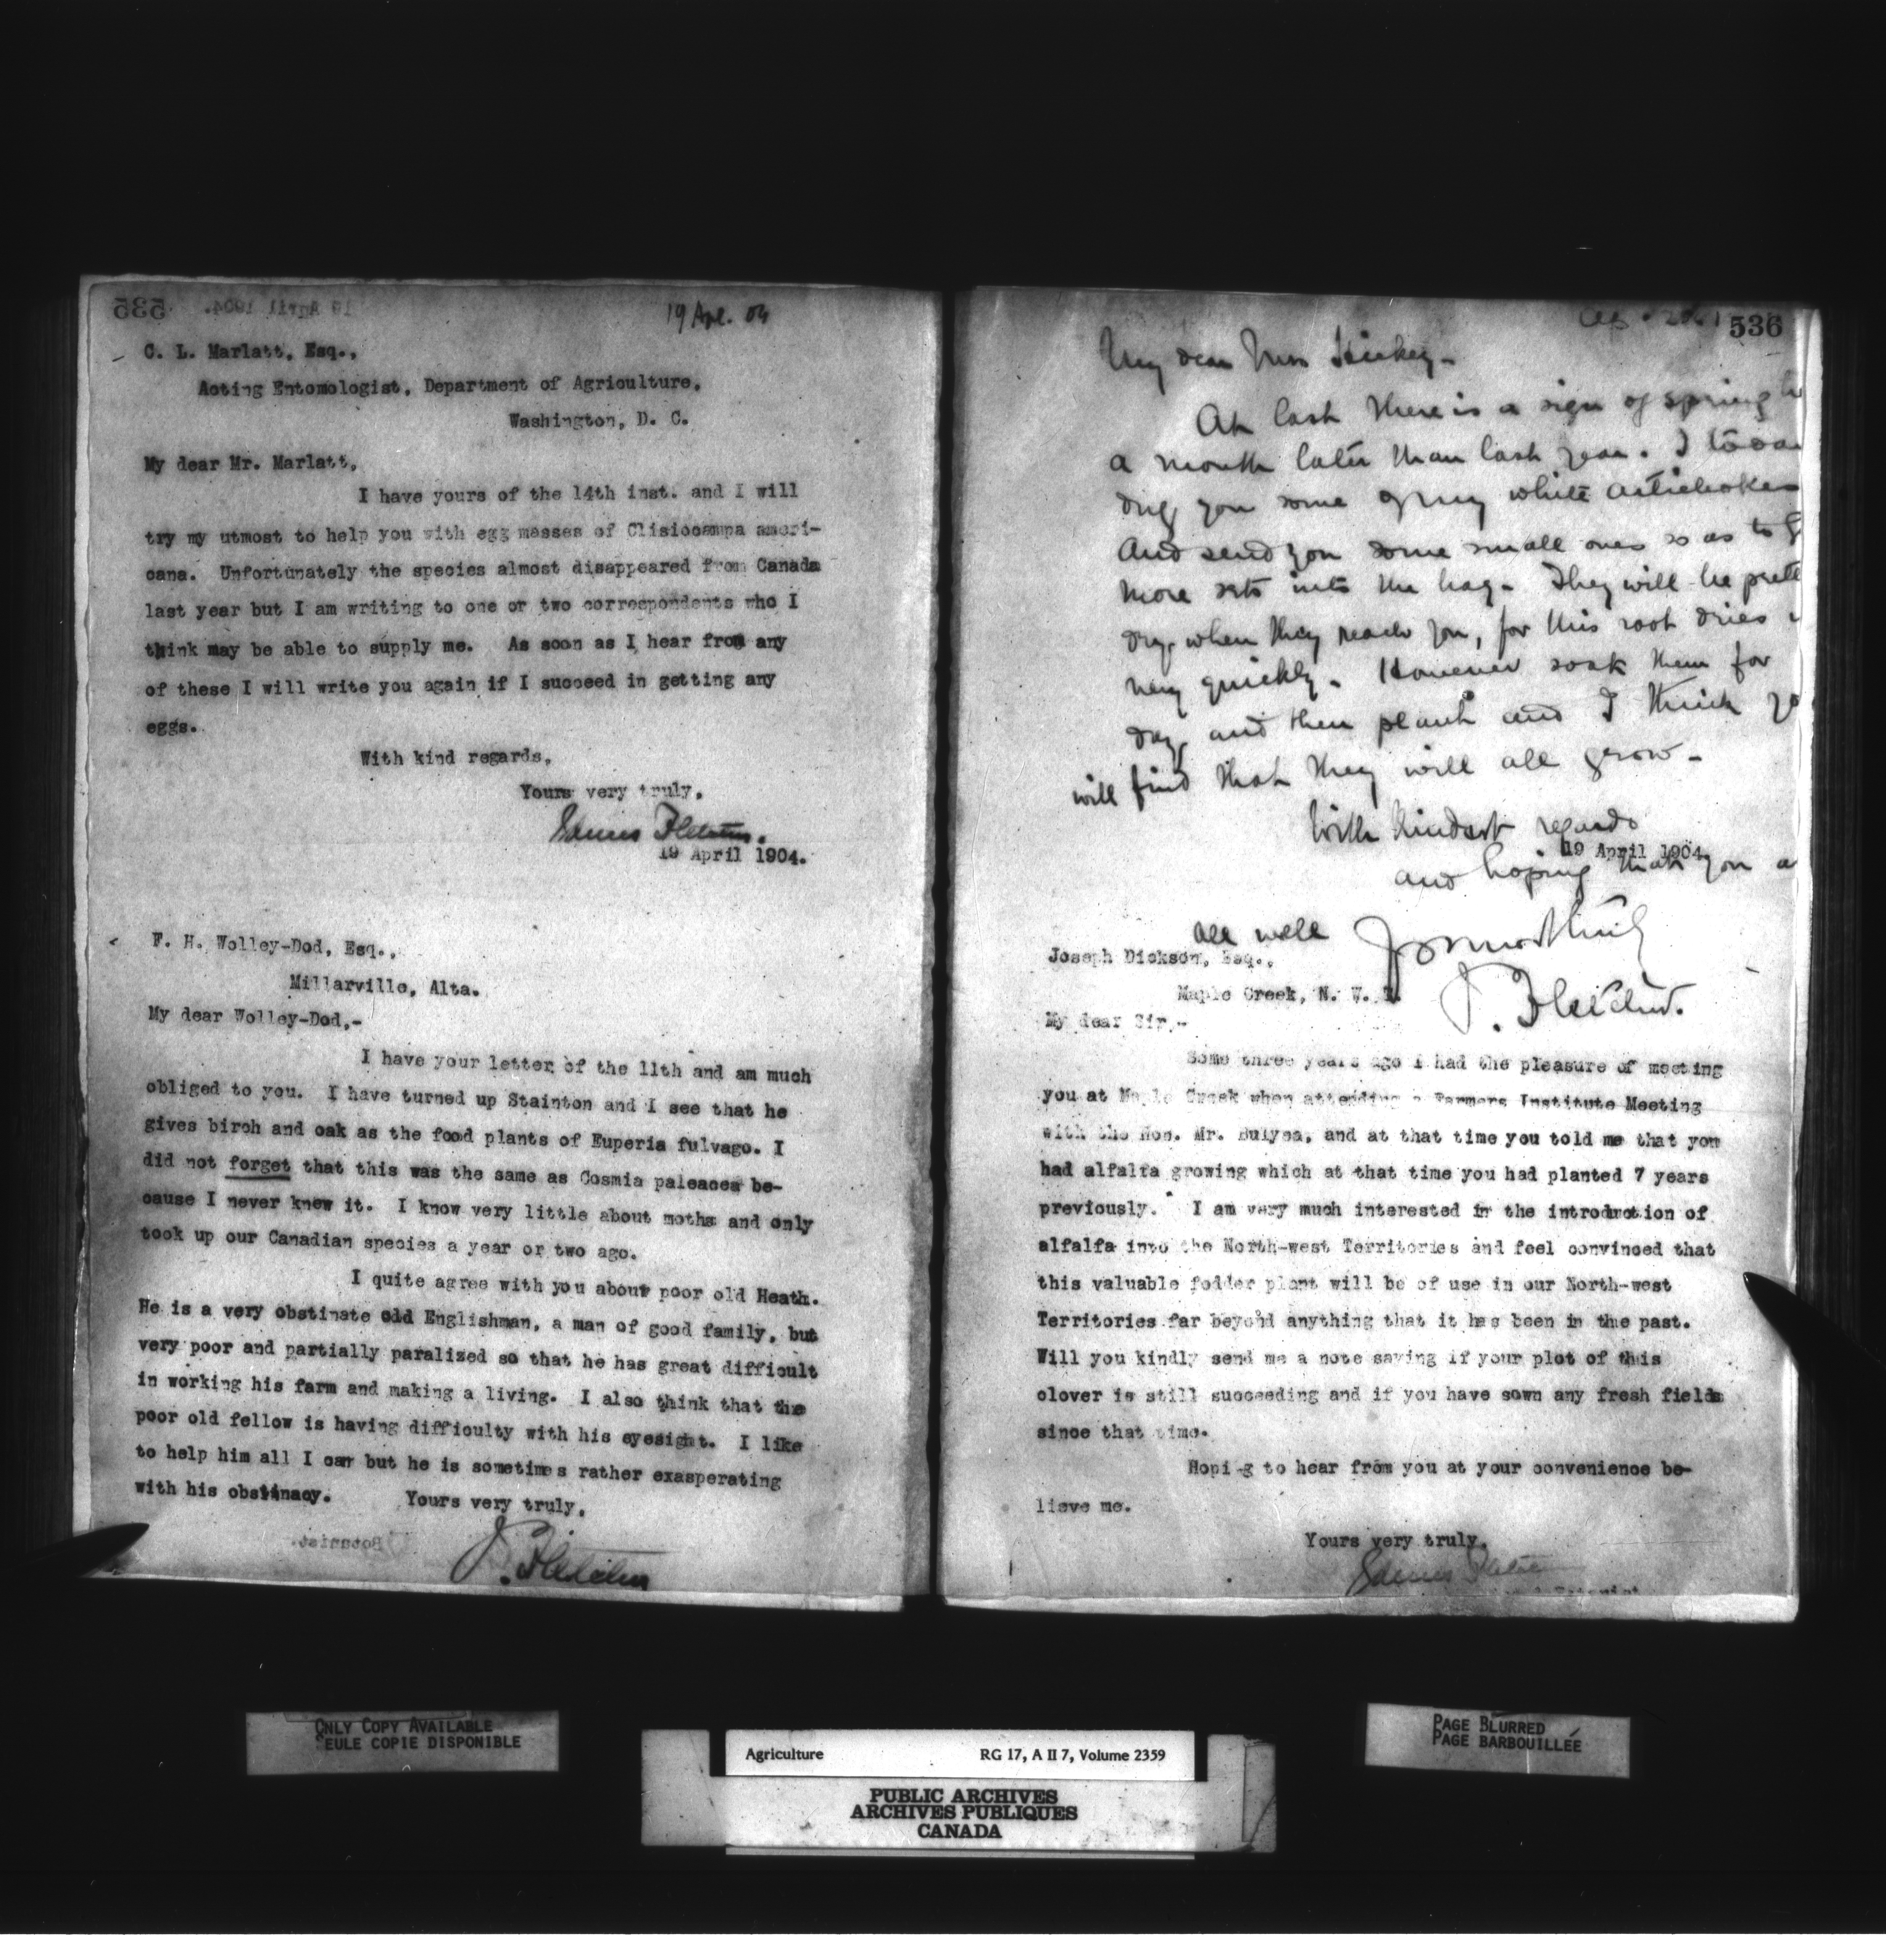 535
19 April 1904.
19 Apl. 04
C. L. Marlatt, Esq.,
Acting Entomologist, Department of Agriculture,
Washington, D. C.
My dear Mr. Marlatt,
I have yours of the 14th inst. and I will
try my utmost to help you with egg masses of Clisiocampa ameri-
cana. Unfortunately the species almost disappeared from Canada
last year but I am writing to one or two correspondents who I
think may be able to supply me. As soon as I hear from any
of these I will write you again if I succeed in getting any
eggs.
With kind regards,
Yours very truly,
James Fletcher.
19 April 1904.
F. H. Wolley-Dod, Esq.,
Millarville, Alta.
My dear Wolley-Dod,-
I have your letter of the 11th and am much
obliged to you. I have turned up Stainton and I see that he
gives birch and oak as the food plants of Euperia fulvago. I
did not forget that this was the same as Cosmia paleacea be-
cause I never knew it. I know very little about moths and only
took up our Canadian species a year or two ago.
I quite agree with you about poor old Heath.
He is a very obstinate old Englishman, a man of good family, but
very poor and partially paralized so that he has great difficult
in working his farm and making a living. I also think that the
poor old fellow is having difficulty with his eyesight. I like
to help him all I can but he is sometimes rather exasperating
with his obstinacy. Yours very truly,
J. Fletcher
Botanist.
536
My dear Mrs
At last there is a sign of spring
a month later than last year. I
dug you some of my white artichokes
and send you some small ones so as to
more sets into the bag. They will be
dry when they reach you, for this root dries
very quickly. However soak them for
day and then plant and I think
will find that they will all grow -
With kindest regards
19 April 1904
and hoping that you
all well
J. Fletcher.
Joseph Dickson, Esq.,
Maple Creek, N. W. T.
My dear Sir,-
Some three years ago I had the pleasure of meeting
you at Maple Creek when attending a Farmers Institute Meeting
with the Hon. Mr. Bulyea, and at that time you told me that you
had alfalfa growing which at that time you had planted 7 years
previously. I am very much interested in the introduction of
alfalfa into the North-west Territories and feel convinced that
this valuable fodder plant will be of use in our North-west
Territories far beyond anything that it has been in the past.
Will you kindly send me a note saying if your plot of this
clover is still succeeding and if you have sown any fresh fields
since that time.
Hoping to hear from you at your convenience be-
lieve me.
Yours very truly,
James Fletcher
ONLY COPY AVAILABLE
SEULE COPIE DISPONIBLE
Agriculture RG 17, A II 7, Volume 2359
PUBLIC ARCHIVES
ARCHIVES PUBLIQUES
CANADA
PAGE BLURRED
PAGE BARBOUILLÉE